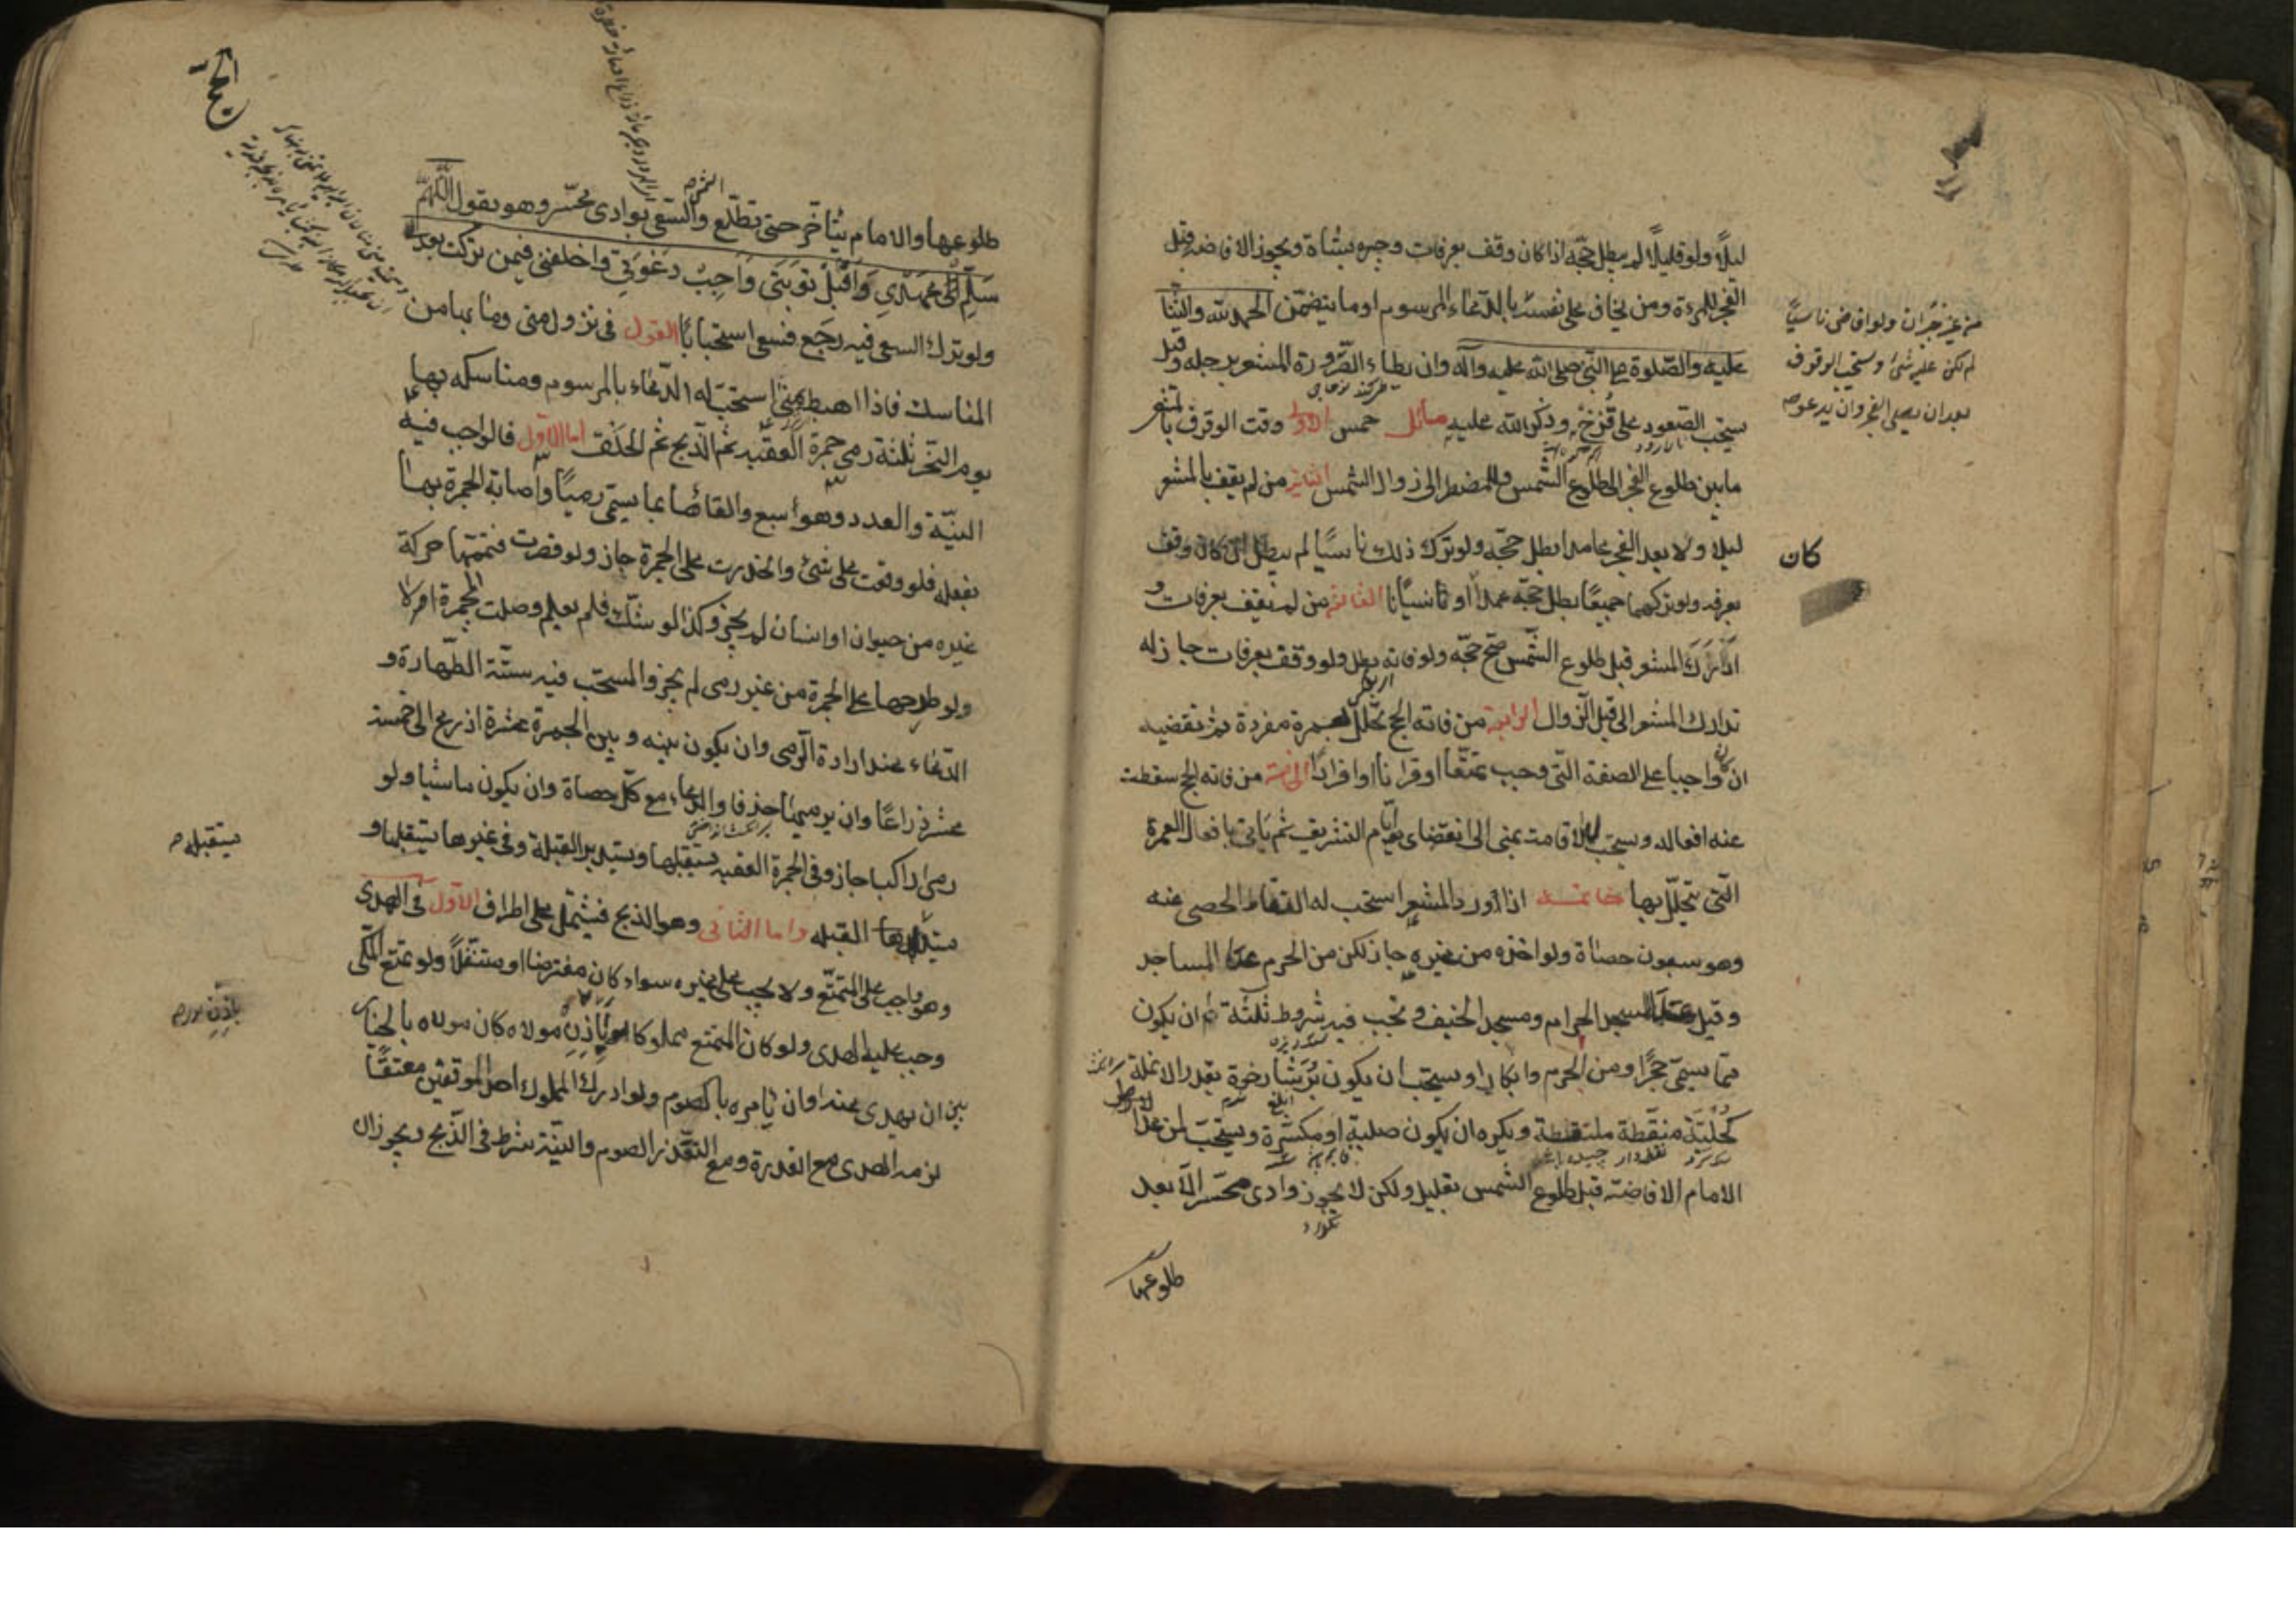 ليلًا ولو قليلًا لم يبطل حجّه اذا كان وقف بعرفات وجبره بشاة ويجوز الافاضه قبل
الفجر للمرءة ومن يخاف على نفسه بالدّعاء المرسوم او ما يتضمّن الحمد لله والثنا
عليه والصّلوة على النّبي صلى الله عليه وآله وان يطاء الصّرورة المشعر برجله وقيل
يستحب الصّعود على قُزَحْ وذكر الله عليه مسائل خمس الاولى وقت الوقوف بالمشعر
ما بين طلوع الفجر الى طلوع الشّمس وللمضطر الى زوال الشمس الثانيه من لم يقف بالمشعر
ليلا ولا بعد الفجر عامدا بطل حجّه ولو ترك ذلك ناسيًا لم يبطل ان كان وقف
بعرفه ولو تركهما جميعًا بطل حجّه عمدا او ناسيًا الثالثه من لم يقف بعرفات و
ادرك المشعر قبل طلوع الشّمس صحّ حجّه ولو فاته بطل ولو وقف بعرفات جاز له
تدارك المشعر الى قبل الزوال الرابعه من فاته الحج تحلّل بعمرة مفردة ثم يقضيه
ان كان واجبا على الصفة التّي وجب تمتّعا او قرانا او افرادًا الخامسه من فاته الحج سقطت
عنه افعاله ويستحب له الاقامت بمنى الى انقضاى ايّام التشريق ثم يأتى بافعال العمرة
الّتى يتحلّل بها خاتمه اذا ورد المشعر استحب له التقاط الحصى منه
وهو سبعون حصاة ولو اخذه من غيره جاز لكن من الحرم عدا المساجد
وقيل عدا المسجد الحرام ومسجد الخيف ويجب فيه شروط ثلثة ان يكون
ممّا يسمّى حجرًا ومن الحرم وابكارا ويستحب ان يكون بُرَشا رخوة بقدر الانملة
كُحْليّة منقّطة ملتقطة ويكره ان يكون صلبة او مكسّرة ويستحبّ لمن عدا
الامام الافاضة قبل طلوع الشمس بقليل ولكن لا يجوز وادى محسّر الّا بعد
طلوعها
من غير جُبران ولو افاض ناسيًا
لم يكن عليه شئ ويستحب الوقوف
بعد ان يصلى الفجر وان يدعو
كان
طلوعها والامام يتأخّر حتى تطلع والسّعى بوادى محسّر وهو يقول اللّهمّ
سَلّم لى عهدى واقبل توبتى واجب دعوتى واخلفنى فيمن تركت بعدى
ولو ترك السعى فيه رجع فسعى استحبابًا القول فى نزول منى وما بها من
المناسك فاذا هبط بمنى استحبّ له الدّعاء بالمرسوم ومناسكه بها
يوم النّحر ثلثة رمى جمرة العقبه ثم الذّبح ثم الحلق اما الاوّل فالواجب فيه
النيّة والعدد وهو سبع والقائها بما يسمّى رميًا واصابة الجمرة بها
بفعله فلو وقعت على شئ وانحدرت على الجمرة جاز ولو قصرت فتممّها حركة
غيره من حيوان او انسان لم يجز وكذا لو شكّ فلم يعلم وصلت الجمرة ام لا
ولو طرحها على الجمرة من غير رمى لم يجز والمستحب فيه ستّة الطّهارة و
الدّعاء عند ارادة الرّمى وان يكون بينه وبين الجمرة عشرة اذرع الى خمسة
عشر ذراعًا وان يرميها خذفا والدعاء مع كلّ حصاة وان يكون ماشيا ولو
رمى راكبا جاز وفى الجمرة العقبه يستقبلها ويستدبر القبلة وفى غيرها يستقبلها و
القبله واما الثانى وهو الذبح فيشتمل على اطراف الاوّل فى الهدى
وهو واجب على المتمتّع ولا يجب على غيره سواء كان مفترضا او متنفّلًا ولو تمتع المكّى
وجب عليه الهدى ولو كان المتمتع مملوكا باذن مولاه كان مولاه بالخيار
بين ان يهدى عنه او ان يأمره بالصوم ولو ادرك المملوك احد الموقفين معتقًا
لزمه الهدى مع القدرة ومع التّعذّر الصوم والنيّة شرط فى الذّبح ويجوز ال
يستقبل
باذن